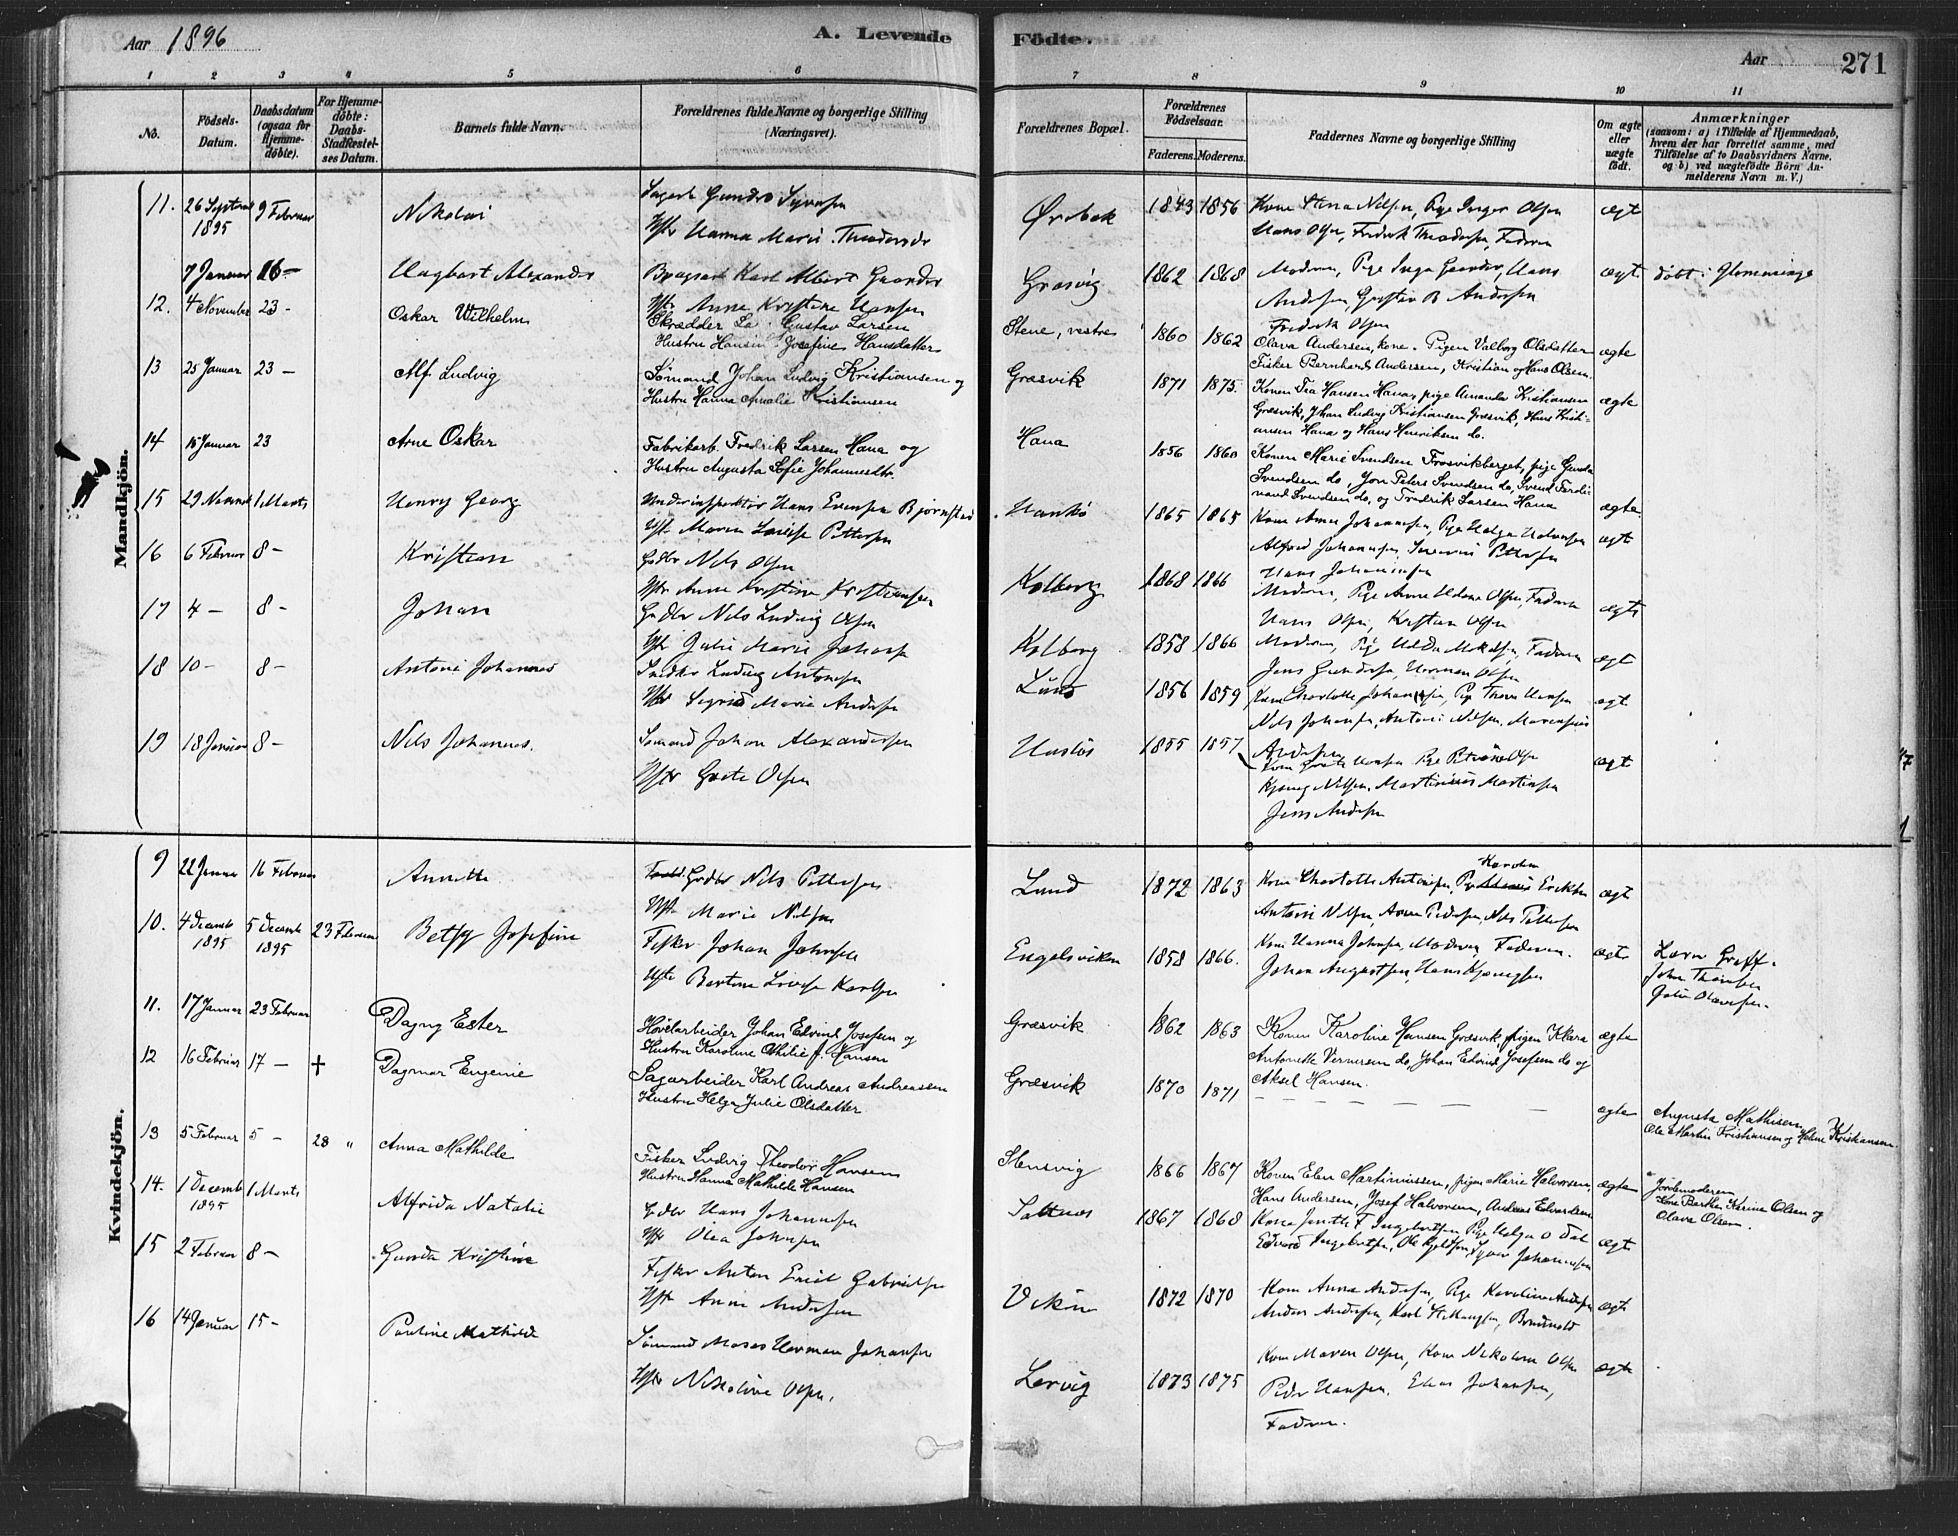 Aar 1896
A. Levende
Födte.
Aar
271
1 2 3 4 5 6 7 8 9 10 11
No.
Födsels-
Datum.
Daabsdatum
(ogsaa for
Hjemme-
döbte).
For Hjemme-
döbte:
Daabs-
Stadfæstel-
ses Datum.
Barnets fulde Navn.
Forældrenes fulde Navne og borgerlige Stilling
(Næringsvei).
Forældrenes Bopæl.
Forældrenes
Födselsaar.
Faderens. Moderens.
Faddernes Navne og borgerlige Stilling
Om ægte
eller
uægte
født.
Anmærkninger
(saasom: a) i Tilfælde af Hjemmedaab,
hvem der har forrettet samme, med
Tilföielse af to Daabsvidners Navne,
og b) ved uægtefödte Börn An-
melderens Navn m. V.)
Mandkjön.
11. 26 Septemb 9 Februar
1895
Nikolai
Hstr Hanna Marie Theodorsdr
1843 1856 Kone Stina Nilsen, Pige Inger Olsen
Hans Olsen, Fredrik Theodorsen, Faderen
ægt
7 Januar 16 –
Hagbart Alexander
Karl Albert
Hstr Anna Kristine Hansen
Græsvig 1862 1868 Moderen, Pige Inga
Andersen, Gustav B Andersen
ægt. døbt i Glemminge
12. 4 November 23 -
Oskar Wilhelm
Skrædder Gustav Larsen
Hustru Josefine Hansdatter
Stene, vestre 1860 1862
Fredrik Olsen
Olava Andersen, kone. Pigen Valborg Olsdatter
Fisker Bernhard Andersen, Kristian og Hans Olsen.
ægte
13 25 Januar 23 –
Alf Ludvig
Sömand Johan Ludvig Kristiansen og
Hustru Hanna Amalie Kristiansen
Græsvik 1871 1875. Konen Tea Hansen Hana, pige Amanda Kristiansen
Græsvik, Johan Ludvig Kristiansen Græsvik, Hans Kristi-
ansen Hana og Hans Henriksen do.
ægte
14 15 Januar 23
Arne Oskar
Fabrikarb. Fredrik Larsen Hana og
Hustru Augusta Sofie Johannesdtr.
Hana 1856 1860 Konen Marie Svendsen Trosvikberget, pige Gunda
Svendsen do, Jon Peters Svendsen do, Svend Ferdi-
nand Svendsen do, og Fredrik Larsen Hana
ægte
15 29 Novemb 1 Marts
Henry Georg
Underinspektör Hans Evensen Bjørnstad
Hstr Maren Lovise Pettersen
Hankö 1865 1865 Kone Anna Johannesen, Pige Helga Halvorsen
Alfred Johannesen, Severin Pettersen
Hans Johannesen
ægt
16 6 Februar 8 –
Kristian
Gdbr Nils Olsen
Hstr Anne Kristine Kristiansen
Kolberg 1868 1866 Moderen, Pige Anne Helene Olsen, Faderen
Hans Olsen, Kristian Olsen
ægt
17 4 – 8 –
Johan
Gdbr Nils Ludvig Olsen
Hstr Julie Marie Johansen
Kolberg 1858 1866 Moderen, Pige Hulda Mikalsen, Faderen
Jens Gundersen, Herman Olsen
ægt
18 10 – 8 –
Antoni Johannes
Snedker Ludvig Antonsen
Hstr Sigrid Marie Andersen
Lund 1856 1859 Kone Charlotte Johannesen, Pige Thora Hansen
Nils Johansen, Antoni Nilsen, Marensius
Andersen
ægt
19 18 Januar 8 –
Nils Johannes.
Sömand Johan Alexandersen
Hstr Grete Olsen
1855 1857 Kone Grete Hansen Pige Petrine Olsen
Nilsen, Martinius Martinsen
Jens Andersen
ægt
Kvindekjön.
9 22 Januar 16 Februar
Annette
Grdbr Nils Pettersen
Hstr Marie Nilsen
Lund 1872 1863
Karoline
Kone Charlotte Antonsen, Pige Eriksen
Antoni Nilsen, Anton Pedersen, Nils Pettersen
ægt
10. 4 Decemb 5 Decemb 23 Februar
1895 1895
Betsy Josefine
Fisker Johan Johnsen
Hstr Bertine Lovise Karlsen
Engelsviken 1858 1866. Kone Hanna Johnsen, Moderen, Faderen.
Johan Augustsen, Hans
ægt
Lærer Graff.
11. 17 Januar 23 Februar
Dagny Ester
Hövlarbeider Johan Edvind Josefsen og
Hustru Karoline Othilie f. Hansen
Græsvik 1862 1863 Konen Karoline Hansen Græsvik, pigen Klara
Antonette Vernersen do, Johan Edvind Josefsen do og
Aksel Hansen.
ægte
12 16 Februar 17 – +
Dagmar Eugenie
Sagarbeider Karl Andreas Andreassen
Hustru Helga Julie Olsdatter
Græsvik 1870 1871 – – – – – –
ægte Augusta Mathisen
Ole Martin Kristiansen og Helene Kristiansen
13 5 Februar 5 – 28 "
Anna Mathilde
Fisker Ludvig Theodor Hansen
Hustru Hanna Mathilde Hansen
Slevsvig 1866 1867 Konen Elen Martiniussen, pigen Marie Halvorsen,
Hans Andersen, Josef Halvorsen, Andreas Edvardsen
ægte
Jordemoderen
Kone Berthe Karine Olsen og
Olava Olsen.
14. 1 Decemb 1 Marts
1895
Alfrida Natalie
Gdbr Hans Johannesen
Hstr Olea Johnsen
Saltnæs 1867 1868
ægt
15 2 Februar 8 –
Gunda Kristine
Fisker Anton Emil Gabrielsen
Hstr Anne Andersen
Viken 1872 1870 Kone Anna Andersen, Pige Karoline Andersen
Anders Andersen, Karl
ægt
16 14 Januar 15 –
Pauline Mathilde
Sömand Moses Herman Johansen
Hstr Nikoline Olsen.
Lervig 1873 1875 Kone Maren Olsen, Kone Nikoline Olsen
Peder Hansen, Elias Johansen,
Faderen.
ægte